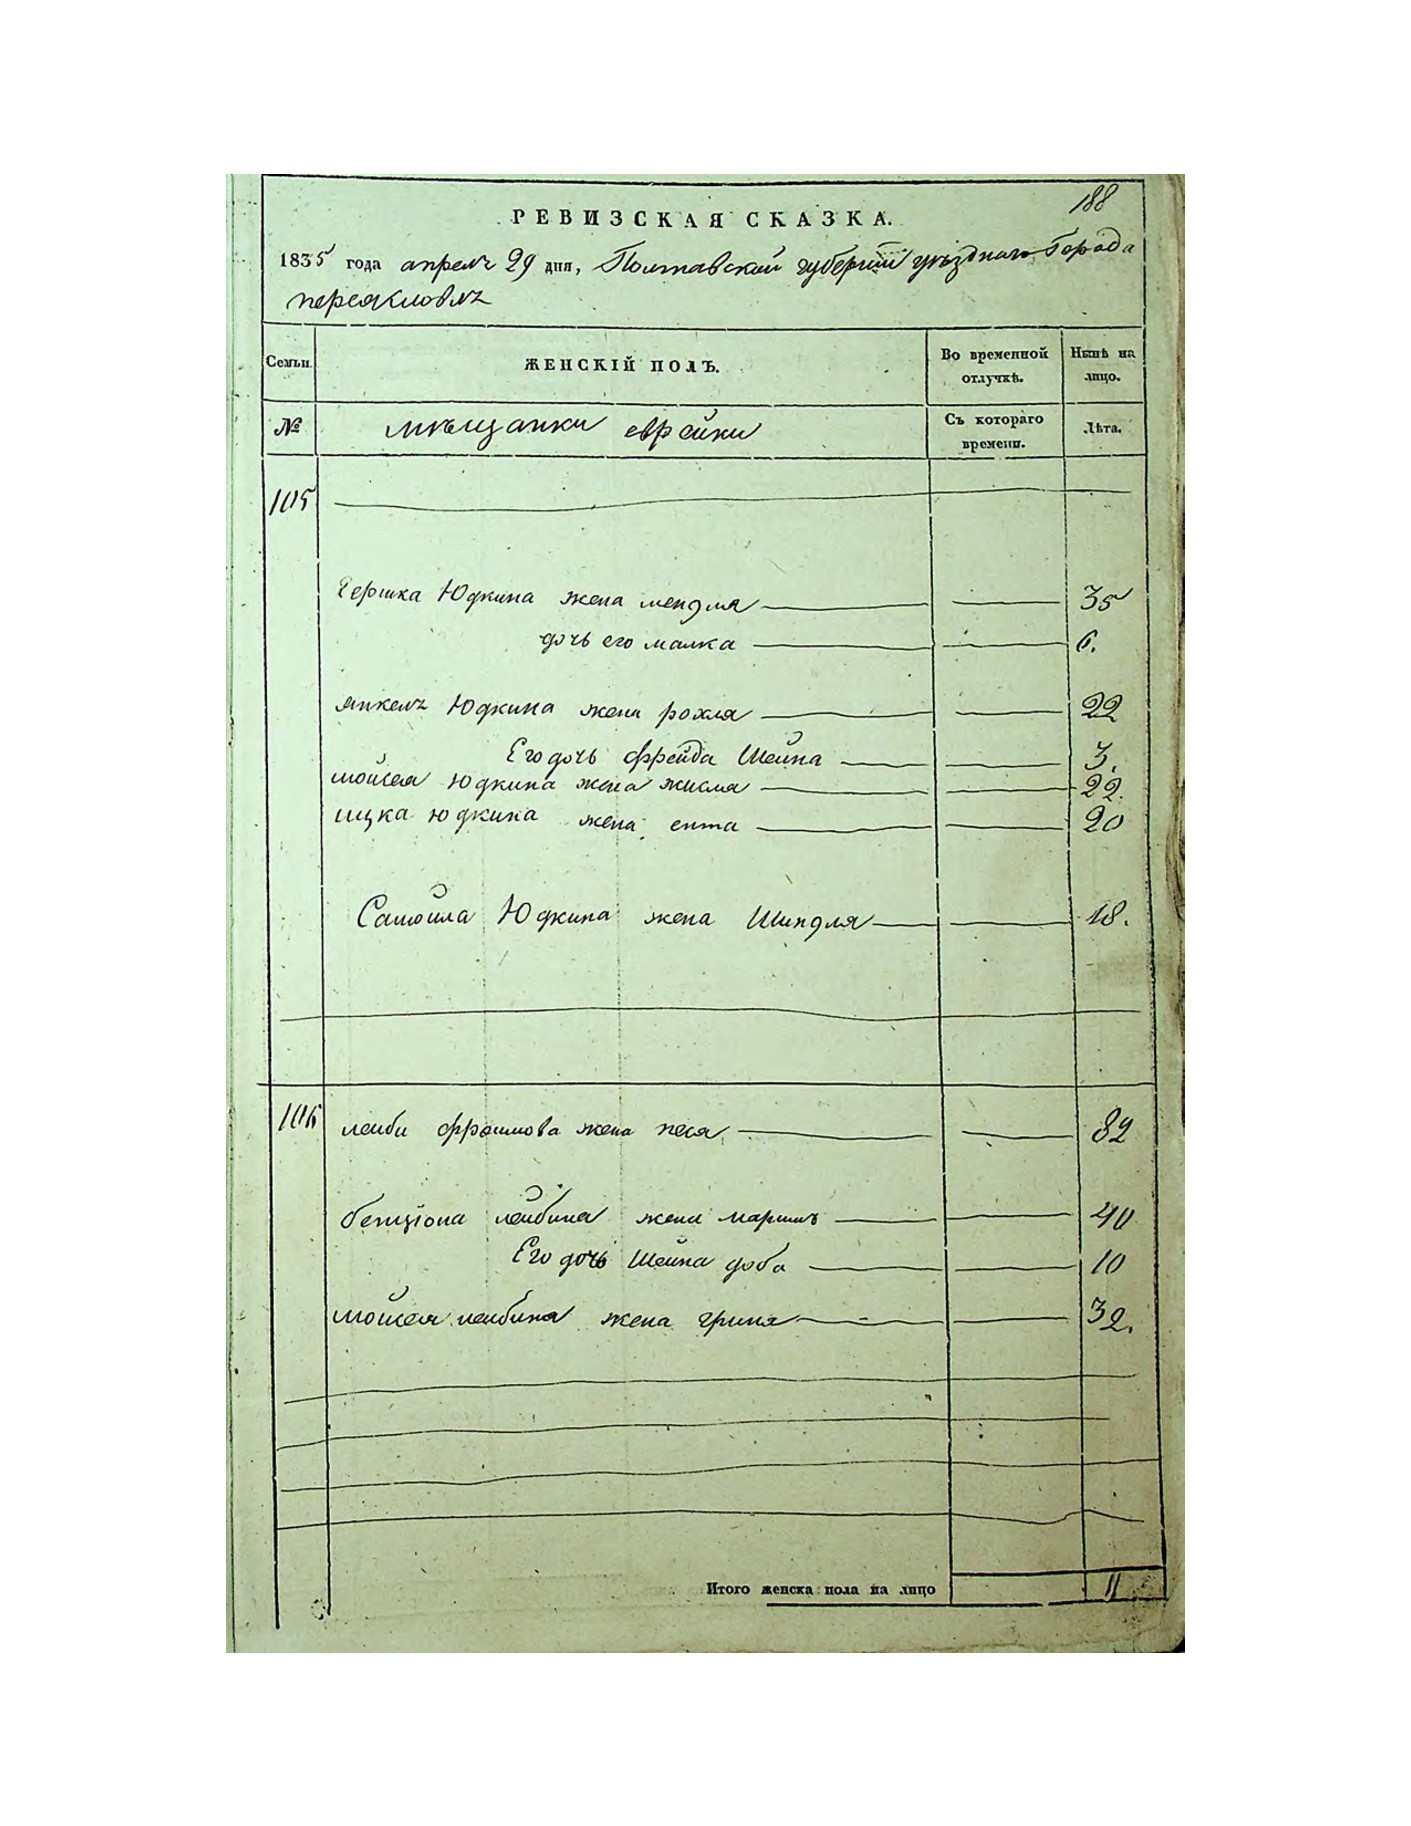 188
РЕВИЗСКАЯ СКАЗКА.
1835 года апреля 29 дня, Полтавской губернии уѣзднаго Города
переяславля
Семьи. ЖЕНСКІЙ ПОЛЪ. Во временной отлучкѣ. Нынѣ на лицо.
№ мѣщанки еврейки Съ котораго времени. Лѣта.
105
Гершка Юдкина жена мендля 35
дочь его малка 6.
янкеля Юдкина жена рохля 22
Его дочь фрейда Шейна 3.
мойсея Юдкина жена 22.
ицка юдкина жена ента 20
Самойла Юдкина жена Шиндля 18.
106 лейби фроимова жена песя 82
бенціона лейбина жена 40
Его дочь Шейна доба 10
мойсея лейбина жена груня 32.
Итого женска пола на лицо 11